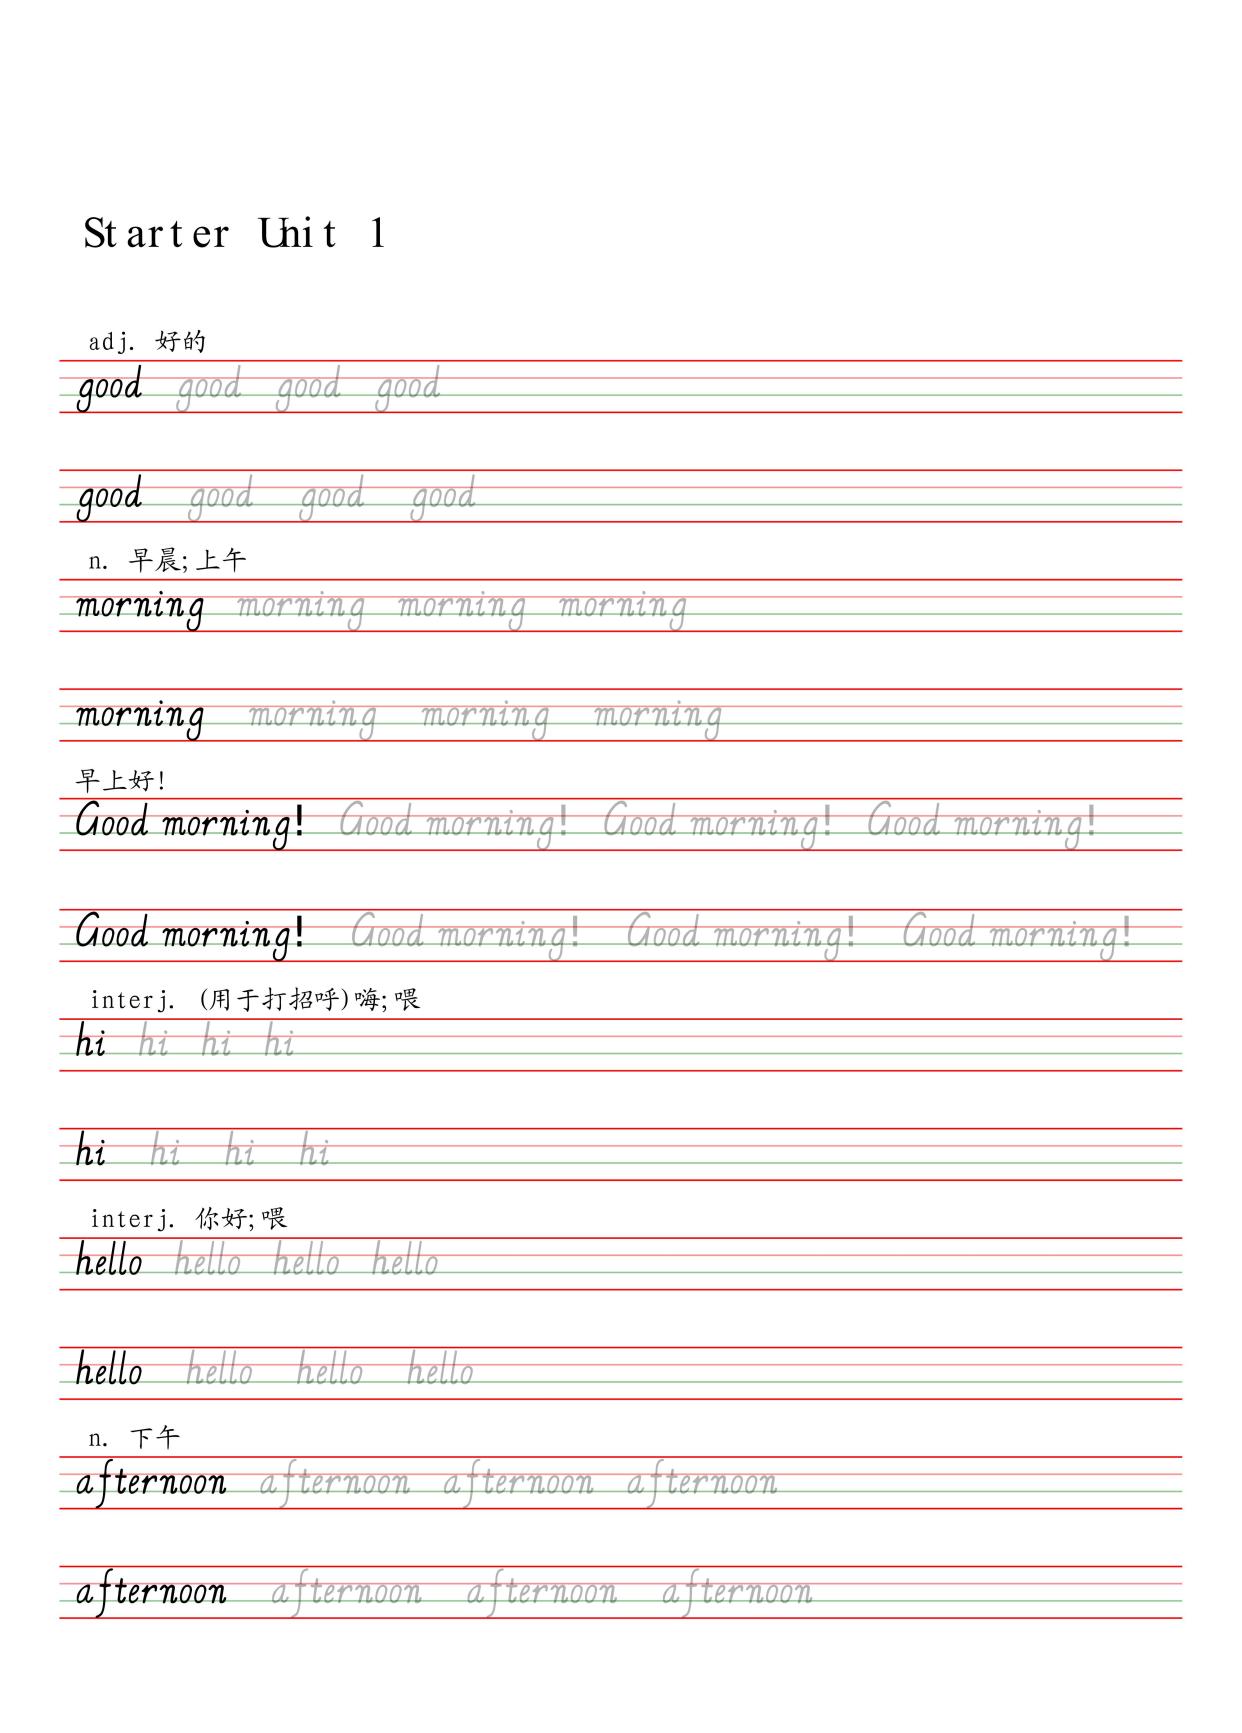 Starter Unit 1
adj. 好的
good good good good
good good good good
n. 早晨;上午
morning morning morning morning
morning morning morning morning
早上好!
Good morning! Good morning! Good morning! Good morning!
Good morning! Good morning! Good morning! Good morning!
interj. (用于打招呼)嗨;喂
hi hi hi hi
hi hi hi hi
interj. 你好;喂
hello hello hello hello
hello hello hello hello
n. 下午
afternoon afternoon afternoon afternoon
afternoon afternoon afternoon afternoon